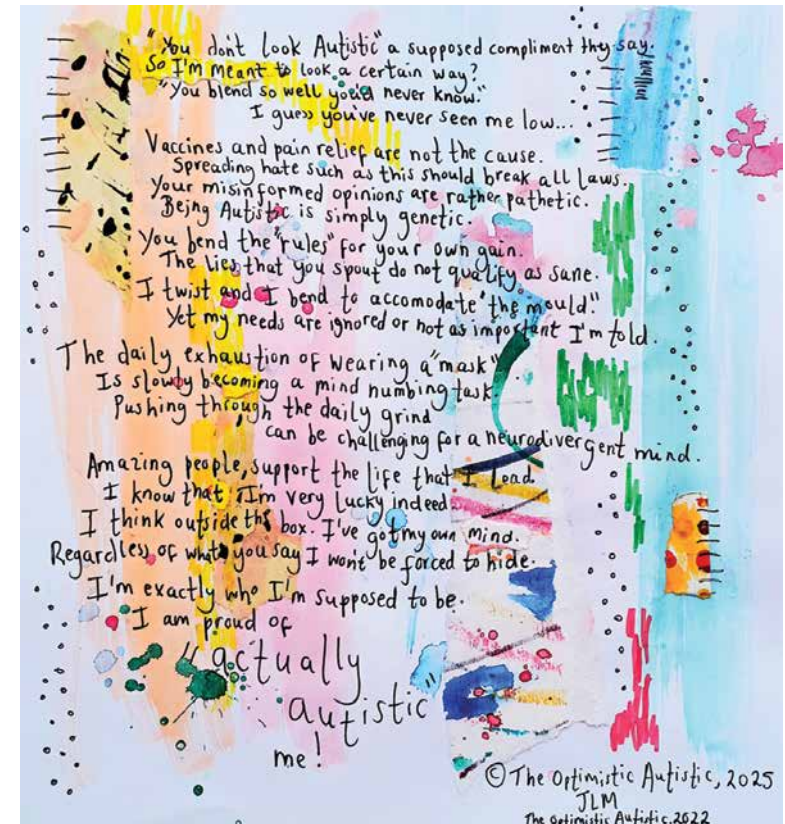 "You don't look Autistic" a supposed compliment they say.
So I'm meant to look a certain way?
"You blend so well you'd never know."
I guess you've never seen me low...
Vaccines and pain relief are not the cause.
Spreading hate such as this should break all laws.
Your misinformed opinions are rather pathetic.
Being Autistic is simply genetic.
You bend the "rules" for your own gain.
The lies that you spout do not qualify as sane.
I twist and I bend to accomodate "the mould".
Yet my needs are ignored or not as important I'm told.
The daily exhaustion of wearing a "mask"
Is slowly becoming a mind numbing task.
Pushing through the daily grind
can be challenging for a neurodivergent mind.
Amazing people, support the life that I lead
I know that I'm very lucky indeed.
I think outside the box. I've got my own mind.
Regardless of what you say I won't be forced to hide.
I'm exactly who I'm supposed to be.
I am proud of
"actually
autistic"
me!
© The Optimistic Autistic, 2025
JLM
The Optimistic Autistic, 2022